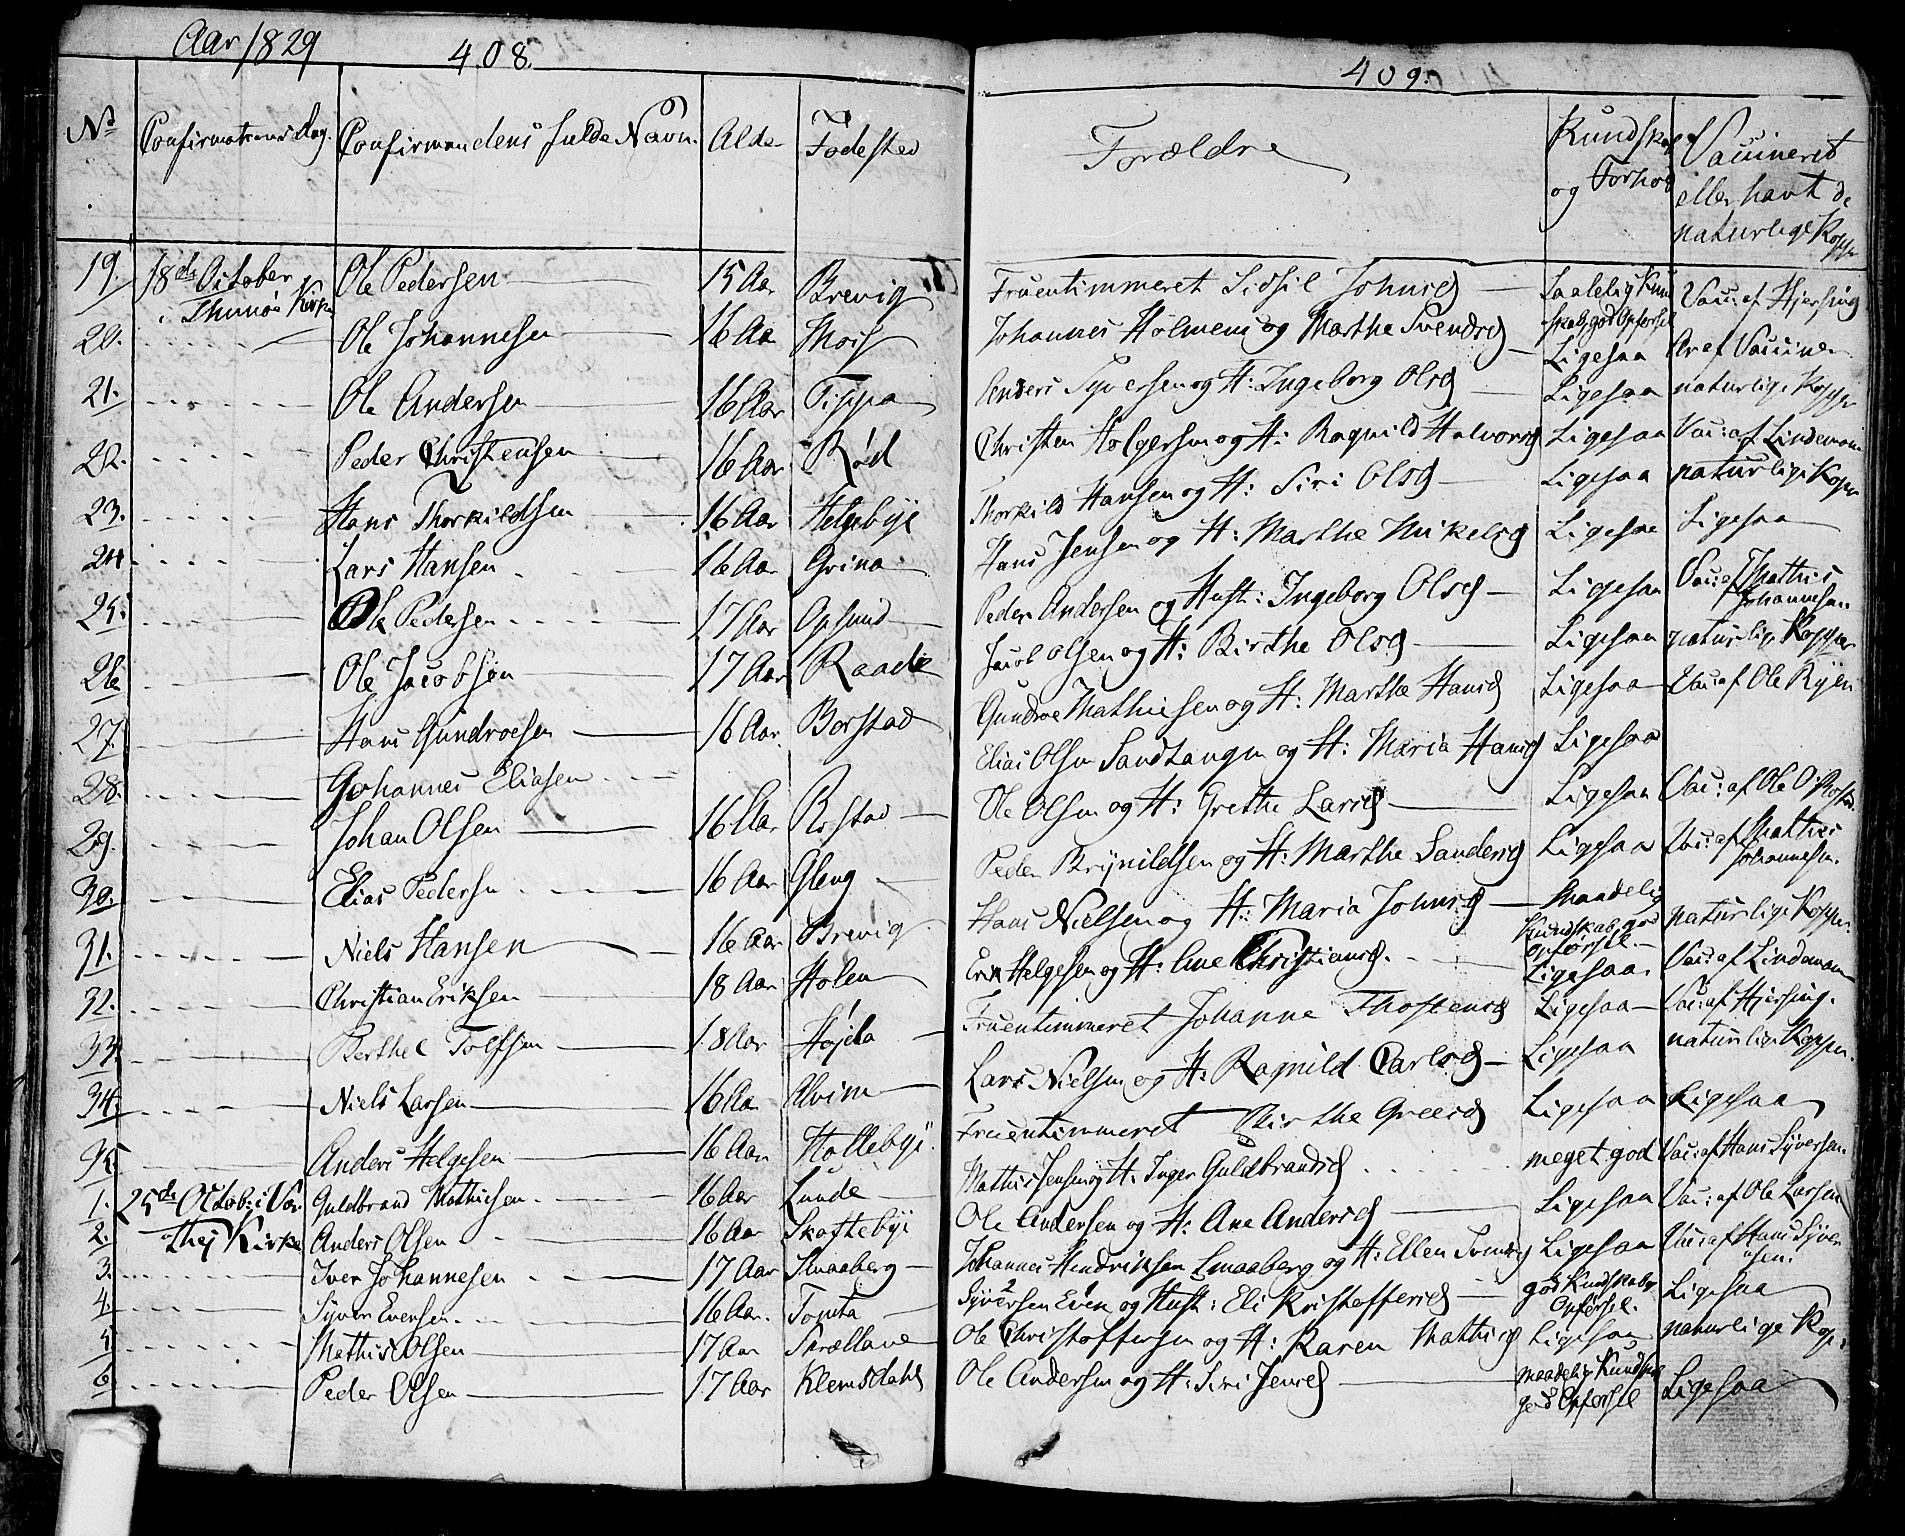 Aar 1829
408.
409.
No
Confirmations Dag.
Confirmandens fulde Navn.
Alder
Fødested
Forældre
Kundskab
og Forhol
Vaccineret
eller havt de
naturlige Kopper
19. 18de October i Thunøe Kirke Ole Pedersen 15 Aar Brevig Fruentimmeret Sidsil Johnsd Saalelig Kundskab, god Opførsel Vacc: af Hjersing
20. Ole Johannesen 16 Aar Mois Johannes Holmens og Marthe Svendsd Ligesaa Ar af Vaccine
21. Ole Andersen 16 Aar Tippa Anders Syversen og H: Ingeborg Olsd Ligesaa naturlige Kopper
22. Peder Christensen 16 Aar Rød Christen Holgersen og H: Ragnild Halvorsd Ligesaa Vacc: af Lindeman
23. Hans Thorkildsen 16 Aar Helgebye Thorkild Hansen og H: Siri Olsd Ligesaa naturlige Kopper
24. Lars Hansen 16 Aar Grina Hans Jensen og H: Marthe Mikelsd Ligesaa Ligesaa
25. Ole Pedersen 17 Aar Opsund Peder Andersen og Hust: Ingeborg Olsd Ligesaa Vacc: af Mathis Johannesen
26. Ole Jacobsen 17 Aar Raade Jacob Olsen og H: Birthe Olsd Ligesaa naturlige Kopper
27. Hans Gundroesen 16 Aar Borstad Gundroe Mathiesen og H: Marthe Hansd Ligesaa Vacc: af Ole Ryen
28. Johannes Eliasen Elias Olsen Sandtangen og H: Maria Hansd Ligesaa
29. Johan Olsen 16 Aar Rostad Ole Olsen og H: Grethe Larsd Ligesaa Vacc: af Ole O: Rostad
30. Elias Pedersen 16 Aar Gleng Peder Brynildsen og H: Marthe Sandersd Ligesaa Vacc: af Mathis Johannesen.
31. Niels Hansen 16 Aar Brevig Hans Nielsen og H: Maria Johnsd Maadelig Kundskab, god Opførsel naturlige Kopper.
32. Christian Eriksen 18 Aar Holen Erik Helgesen og H: Ane Christiansd. Ligesaa. Vacc: af Lindeman
33. Berthel Tolfsen 18 Aar Højda Fruentimmeret Johanne Thostensd Ligesaa Vacc: af Hjersing.
34. Niels Larsen 16 Aar Alvim Lars Nielsen og H: Ragnild Carlsd Ligesaa naturlige Kopper.
35. Anders Helgesen 16 Aar Hollebye. Fruentimmeret Birthe Greersd Ligesaa Ligesaa
1. 25de Octob: i Varthej Kirke Guldbrand Mathiesen 16 Aar Lunde Mathis Jensen og H: Inger Guldbrandsd meget god Vacc: af Hans Syversen.
2. Anders Olsen 16 Aar Skoftebye Ole Andersen og H: Ane Andersd Ligesaa Vacc: af Ole Larsen
3. Iver Johannesen 17 Aar Smaaberg Johannes Hendriksen Smaaberg og H: Ellen Svendsd Ligesaa Vacc: af Hans Syversen.
4. Syver Evensen 16 Aar. Tomta Syversen Even og Hust: Eli Kristoffersd god Kundskab og Opførsel. Ligesaa
5 Mathis Olsen 17 Aar Skrællane Ole Christoffersen og H: Karen Mathisd Ligesaa naturlige Kop:
6 Peder Olsen 17 Aar Klemsdahls Ole Andersen og H: Siri Jensd maadelig Kundskab god Opførsel Ligesaa